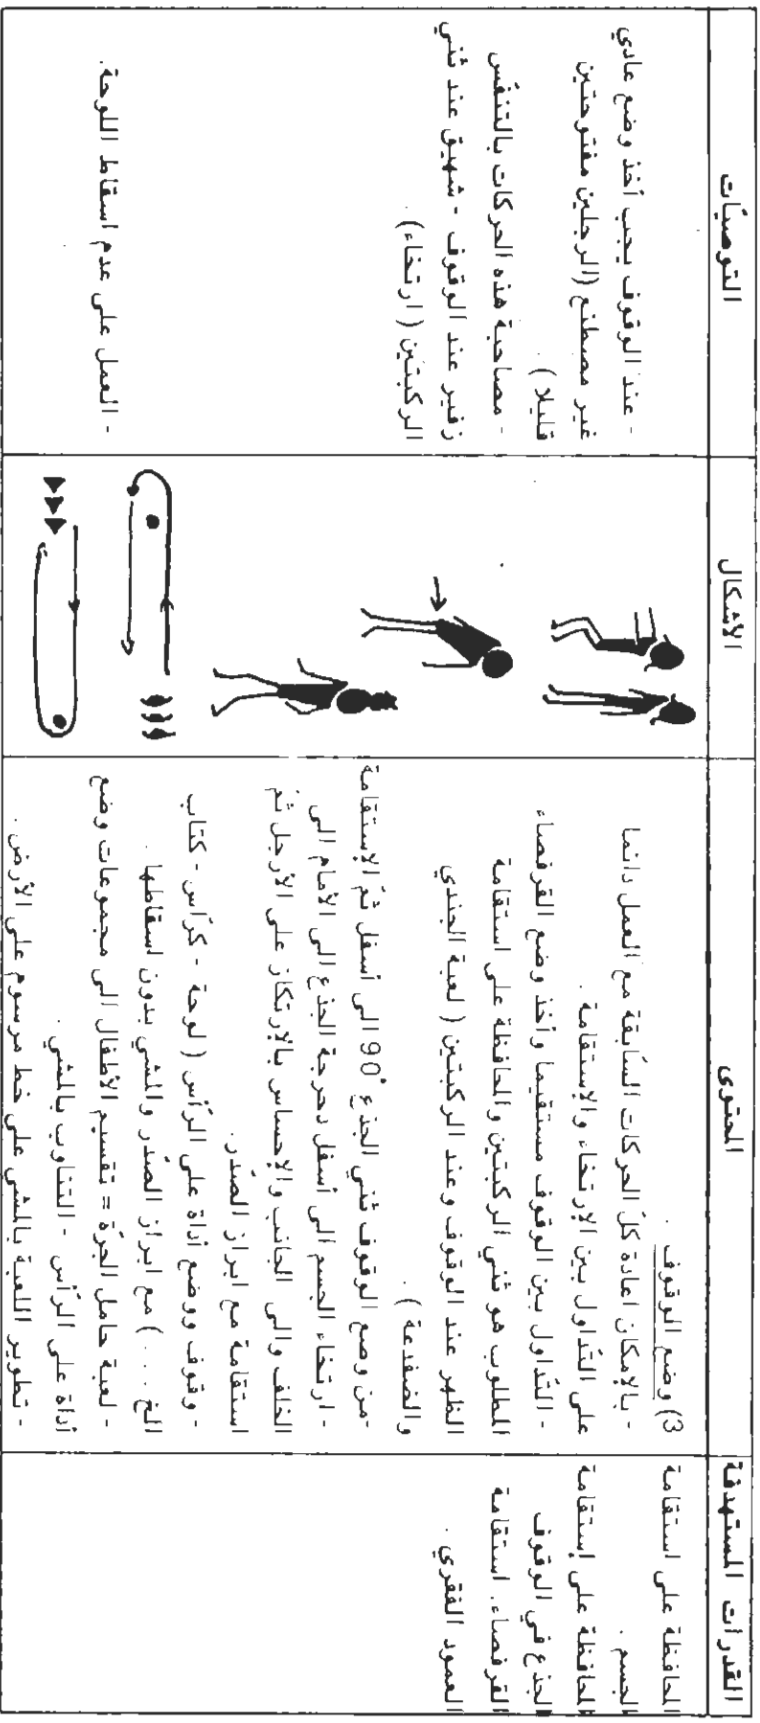 القدرات المستهدفة
المحتوى
الأشكال
التوصيّات
المحافظة على استقامة
الجسم .
المحافظة على إستقامة
الجذع في الوقوف
القرفصاء. استقامة
العمود الفقري .
3) وضع الوقوف .
- بالإمكان اعادة كلّ الحركات السّابقة مع العمل دائما
على التّداول بين الإرتخاء والإستقامة .
- التّداول بين الوقوف مستقيما وأخذ وضع القرفصاء
المطلوب هو ثني الركبتين والمحافظة على استقامة
الظهر عند الوقوف وعند الركبتين ( لعبة الجندي
والضفدعة ) .
-من وضع الوقوف ثني الجذع 90° الى أسفل ثمّ الإستقامة
- ارتخاء الجسم الى أسفل دحرجة الجذع الى الأمام الى
الخلف والى الجانب والإحساس بالإرتكاز على الأرجل ثم
استقامة مع ابراز الصّدر.
- وقوف ووضع أداة على الرّأس ( لوحة - كرّاس - كتاب
الخ . . . ) مع ابراز الصّدر والمشي بدون اسقاطها .
- لعبة حامل الجرّة = تقسيم الأطفال الى مجموعات وضع
أداة على الرّأس - التناوب بالمشي .
- تطوير اللعبة بالمشي على خط مرسوم على الأرض .
- عند الوقوف يجب أخذ وضع عادي
غير مصطنع (الرجلين مفتوحتين
قليلا ) .
- مصاحبة هذه الحركات بالتنفّس
زفير عند الوقوف - شهيق عند ثني
الركبتين ( ارتخاء) .
- العمل على عدم اسقاط اللوحة.